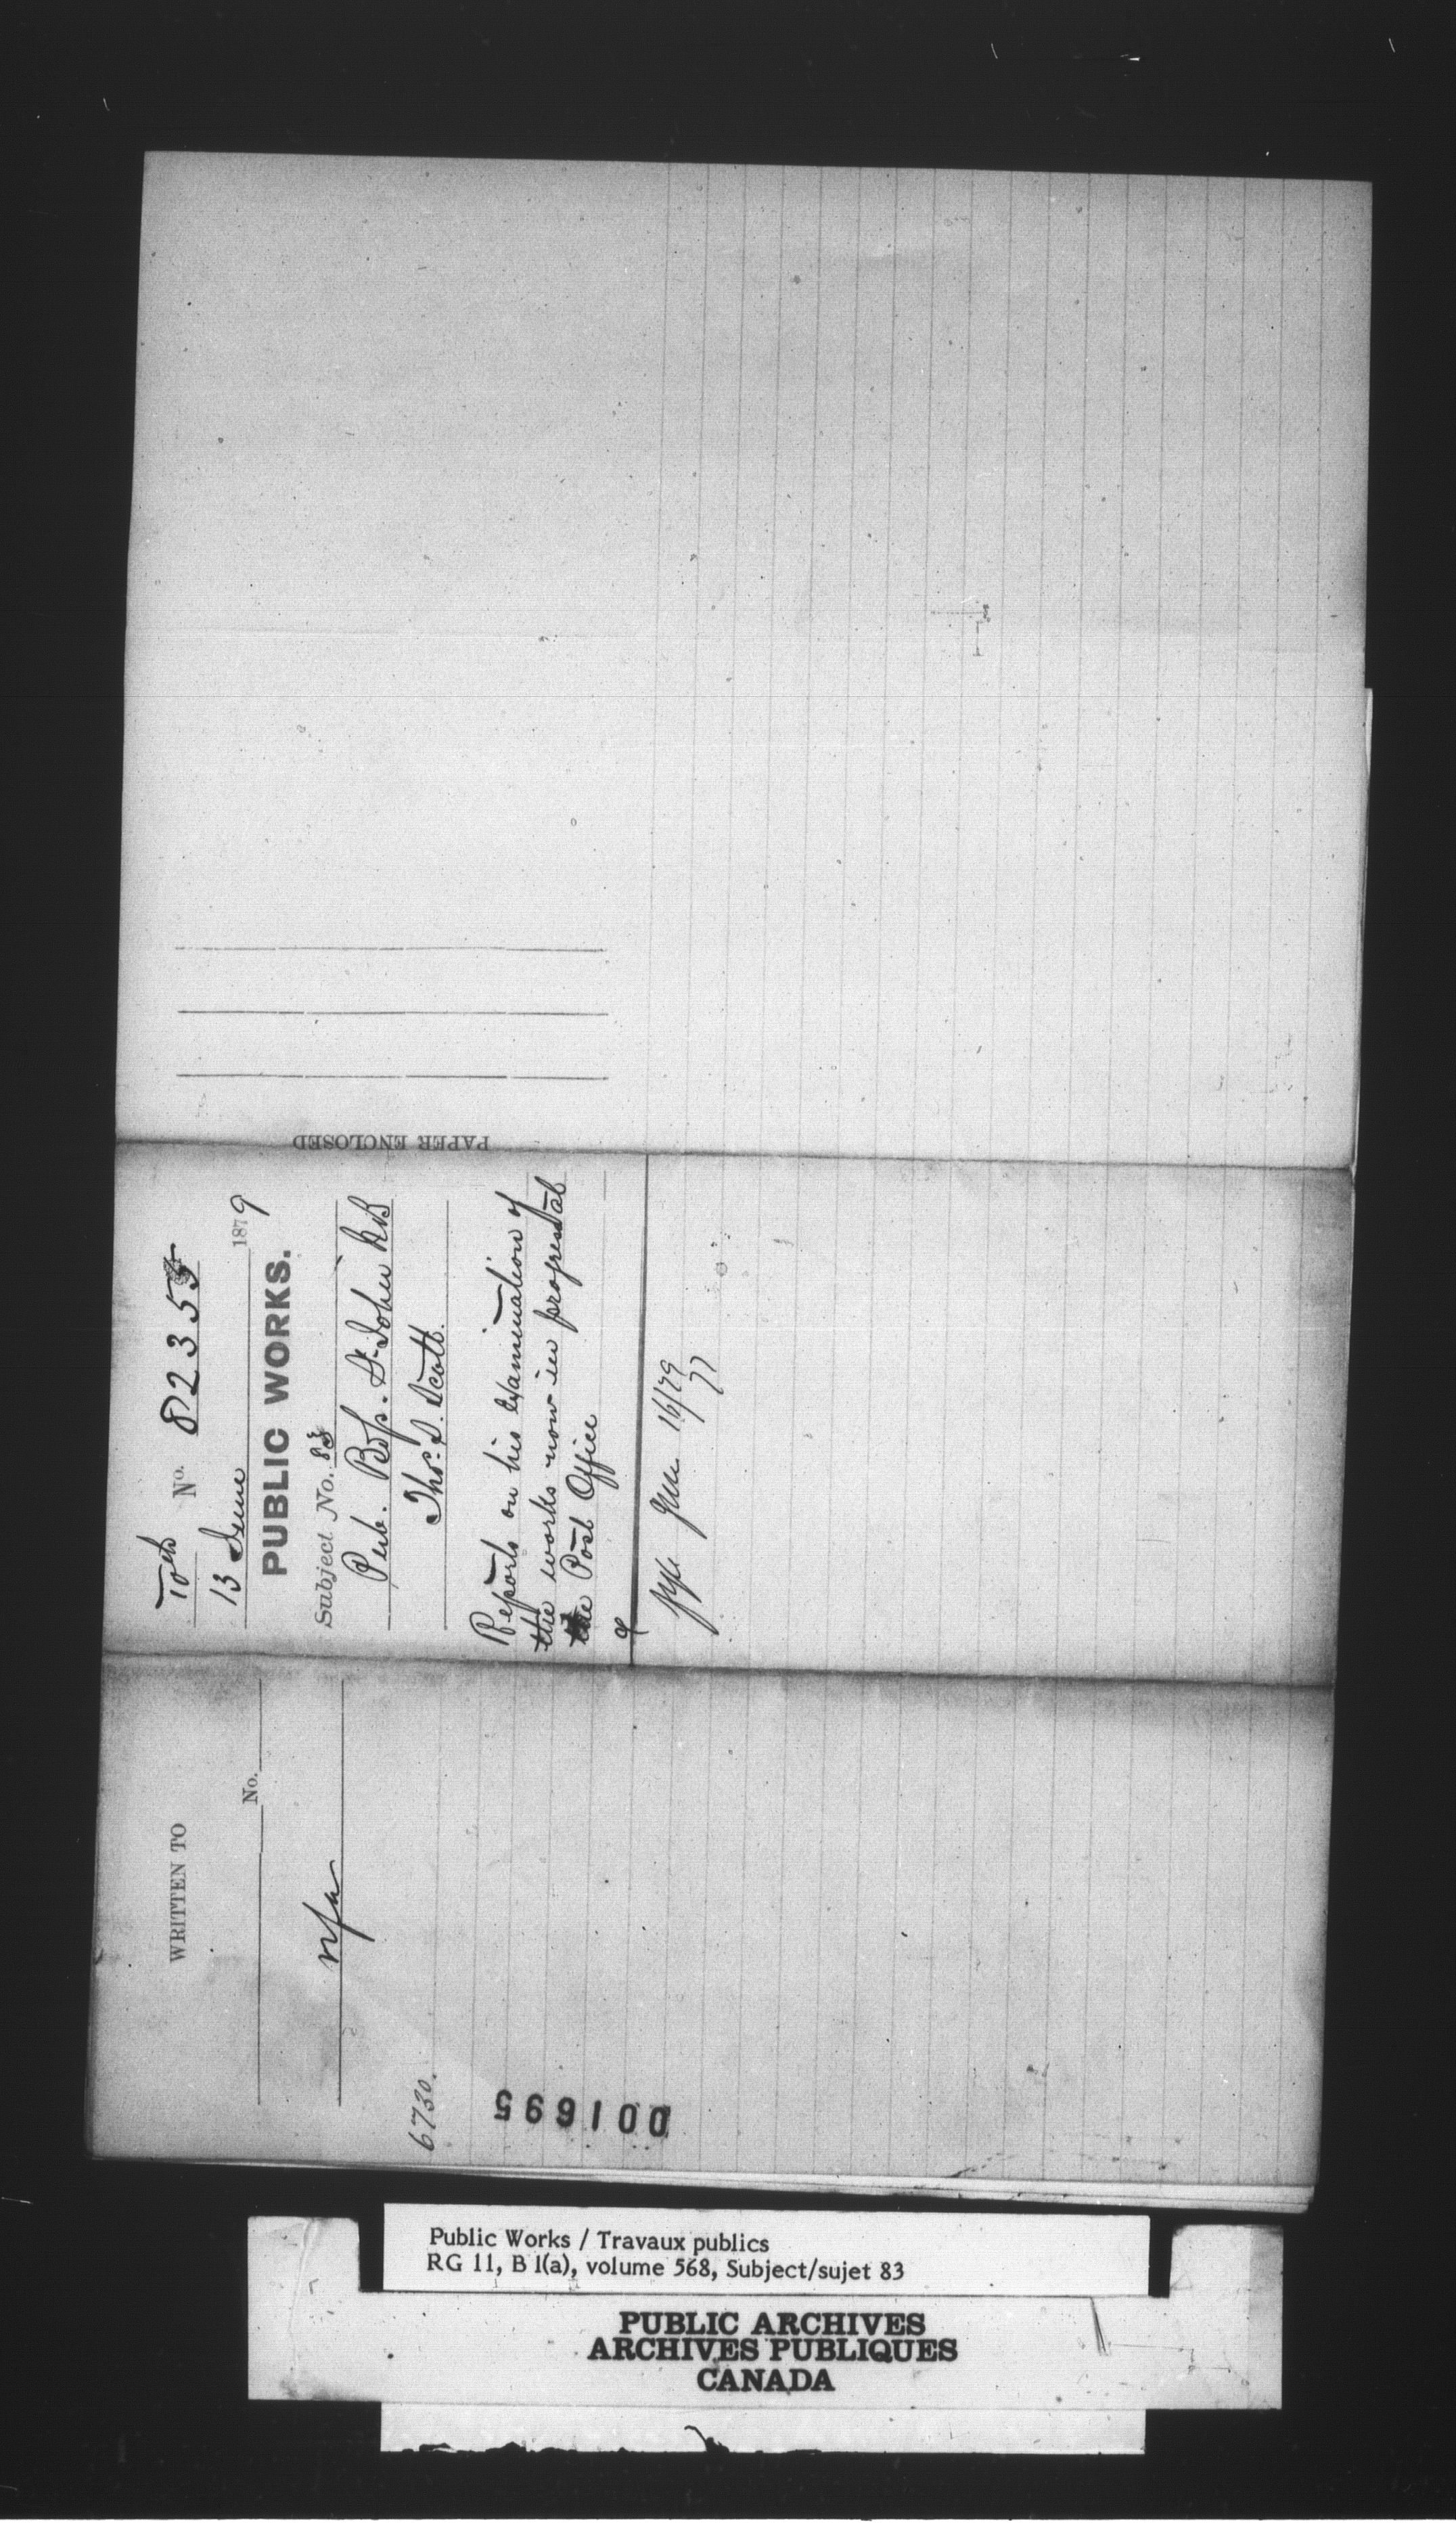 WRITTEN TO
No.
nfa
6730.
001695
10th No. 82355
13 June 1879
PUBLIC WORKS.
Subject No. 83
Pub. Bdgs. St. John NB
Thos. S. Scott.
Reports on his examination of
the works now in progress at
the Post Office
June 16/79
PAPER ENCLOSED
Public Works / Travaux publics
RG 11, B 1(a), volume 568, Subject/sujet 83
PUBLIC ARCHIVES
ARCHIVES PUBLIQUES
CANADA